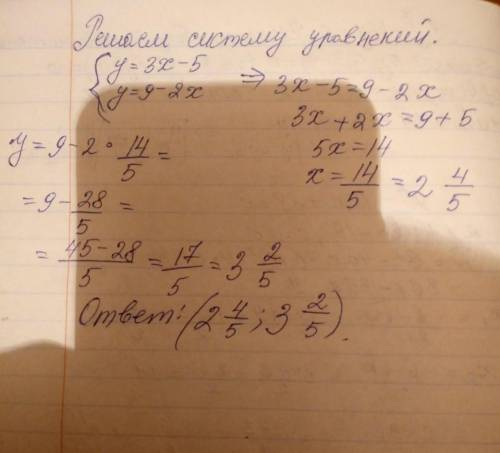 Решаем систему уравнений.
{ y = 3x - 5
y = 9 - 2x
⇒ 3x - 5 = 9 - 2x
3x + 2x = 9 + 5
5x = 14
x = 14/5 = 2 4/5
y = 9 - 2 · 14/5 =
= 9 - 28/5 =
= 45 - 28/5 = 17/5 = 3 2/5
Ответ: (2 4/5; 3 2/5).